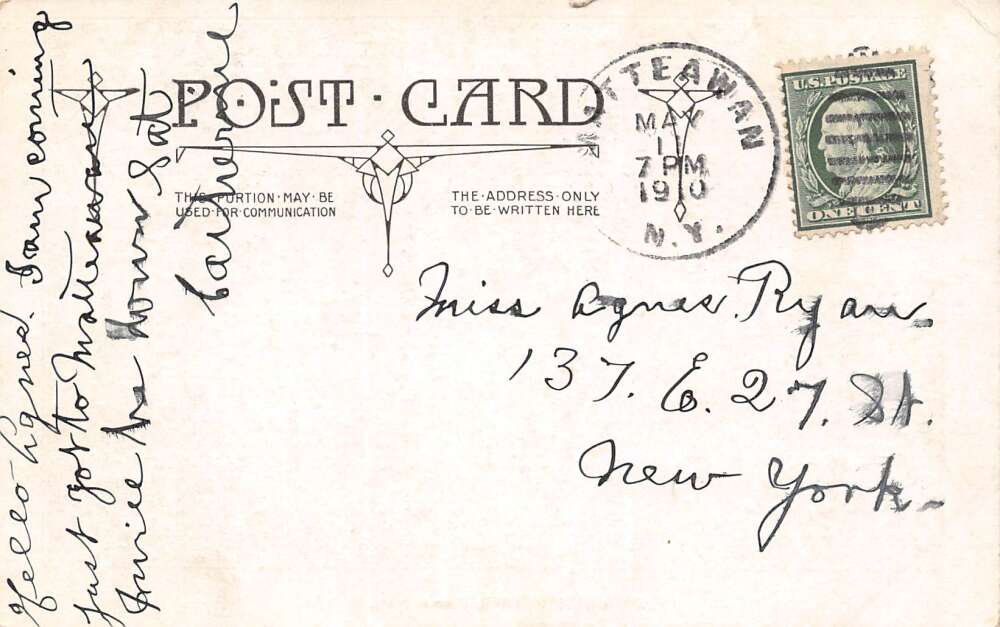 POST · CARD
THIS · PORTION · MAY · BE
USED · FOR · COMMUNICATION
THE · ADDRESS · ONLY
TO · BE · WRITTEN HERE
MATTEAWAN
MAY
7 PM
N.Y.
U.S. POSTAGE
ONE CENT
Hello Agnes. I am coming
just got to Matteawan
I will be down Sat
Catherine
Miss Agnes Ryan
137. E. 27. St.
New York